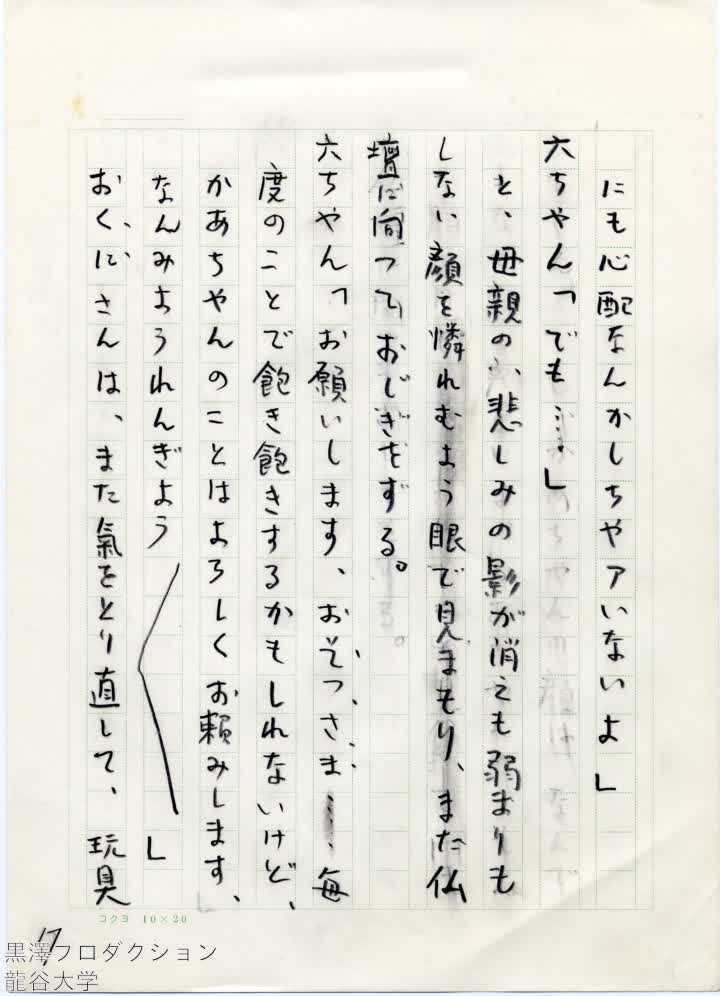 にも心配なんかしちやアいないよ」
六ちやん「でも……」
と、母親の、悲しみの影が消えも弱まりも
しない顔を憐れむよう眼で見まもり、また仏
壇に向つておじぎをずる。
六ちやん「お願いします、おそつさま……毎
度のことで飽き飽きするかもしれないけど、
かあちやんのことはよろしくお頼みします、
なんみようれんぎよう〱」
おくにさんは、また氣をとり直して、玩具
コクヨ 10×20
17
黒澤プロダクション
龍谷大学